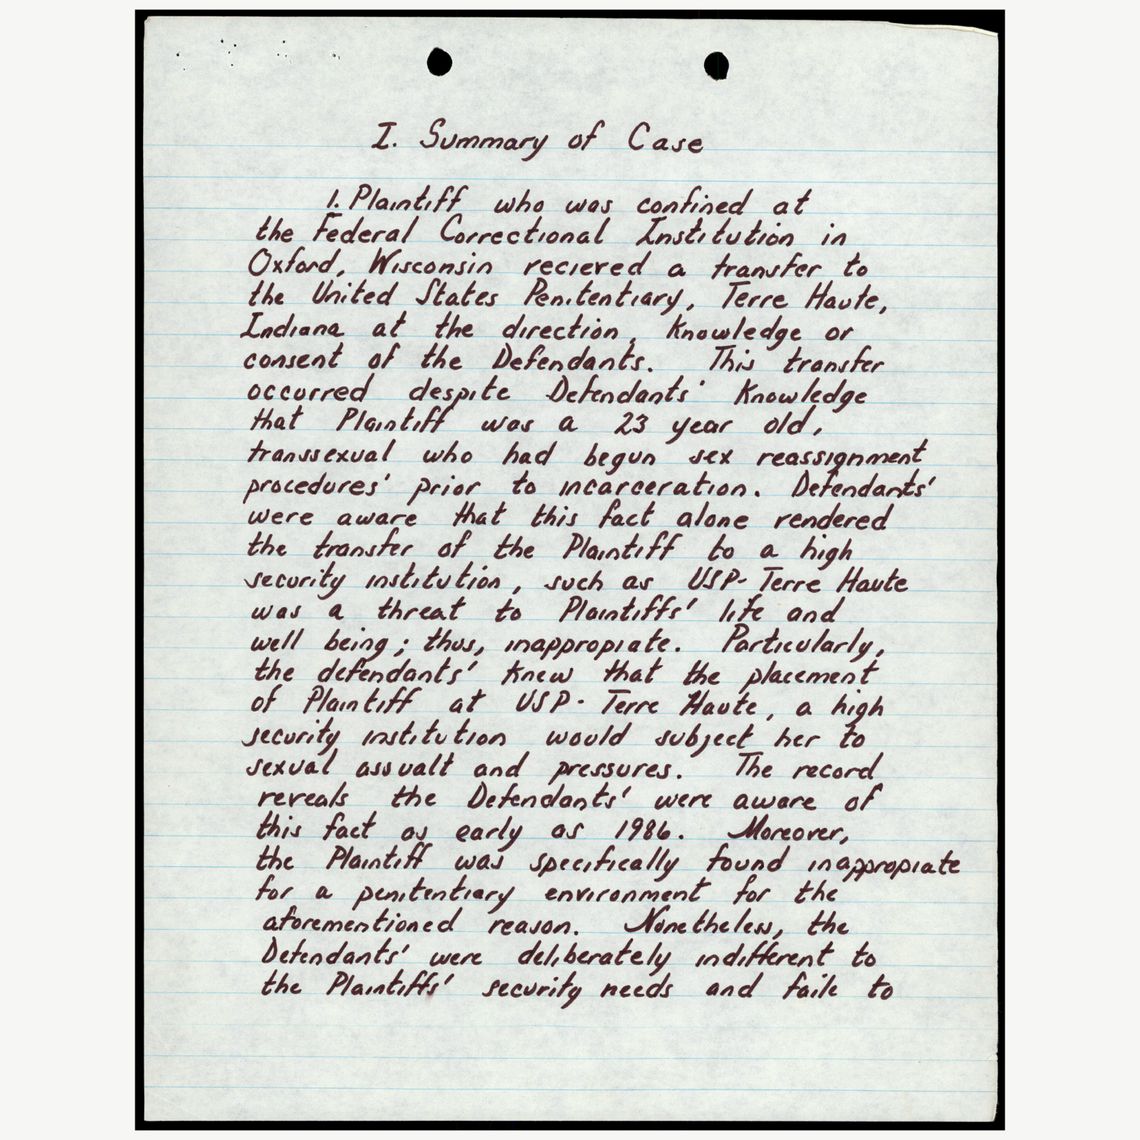 I. Summary of Case
1. Plaintiff who was confined at
the Federal Correctional Institution in
Oxford, Wisconsin recieved a transfer to
the United States Penitentiary, Terre Haute,
Indiana at the direction, knowledge or
consent of the Defendants. This transfer
occurred despite Defendants' knowledge
that Plaintiff was a 23 year old,
transsexual who had begun sex reassignment
procedures' prior to incarceration. Defendants'
were aware that this fact alone rendered
the transfer of the Plaintiff to a high
security institution, such as USP-Terre Haute
was a threat to Plaintiffs' life and
well being; thus, inappropiate. Particularly,
the defendants' knew that the placement
of Plaintiff at USP-Terre Haute, a high
security institution would subject her to
sexual assualt and pressures. The record
reveals the Defendants' were aware of
this fact as early as 1986. Moreover,
the Plaintiff was specifically found inappropiate
for a penitentiary environment for the
aforementioned reason. Nonetheless, the
Defendants' were deliberately indifferent to
the Plaintiffs' security needs and faile to